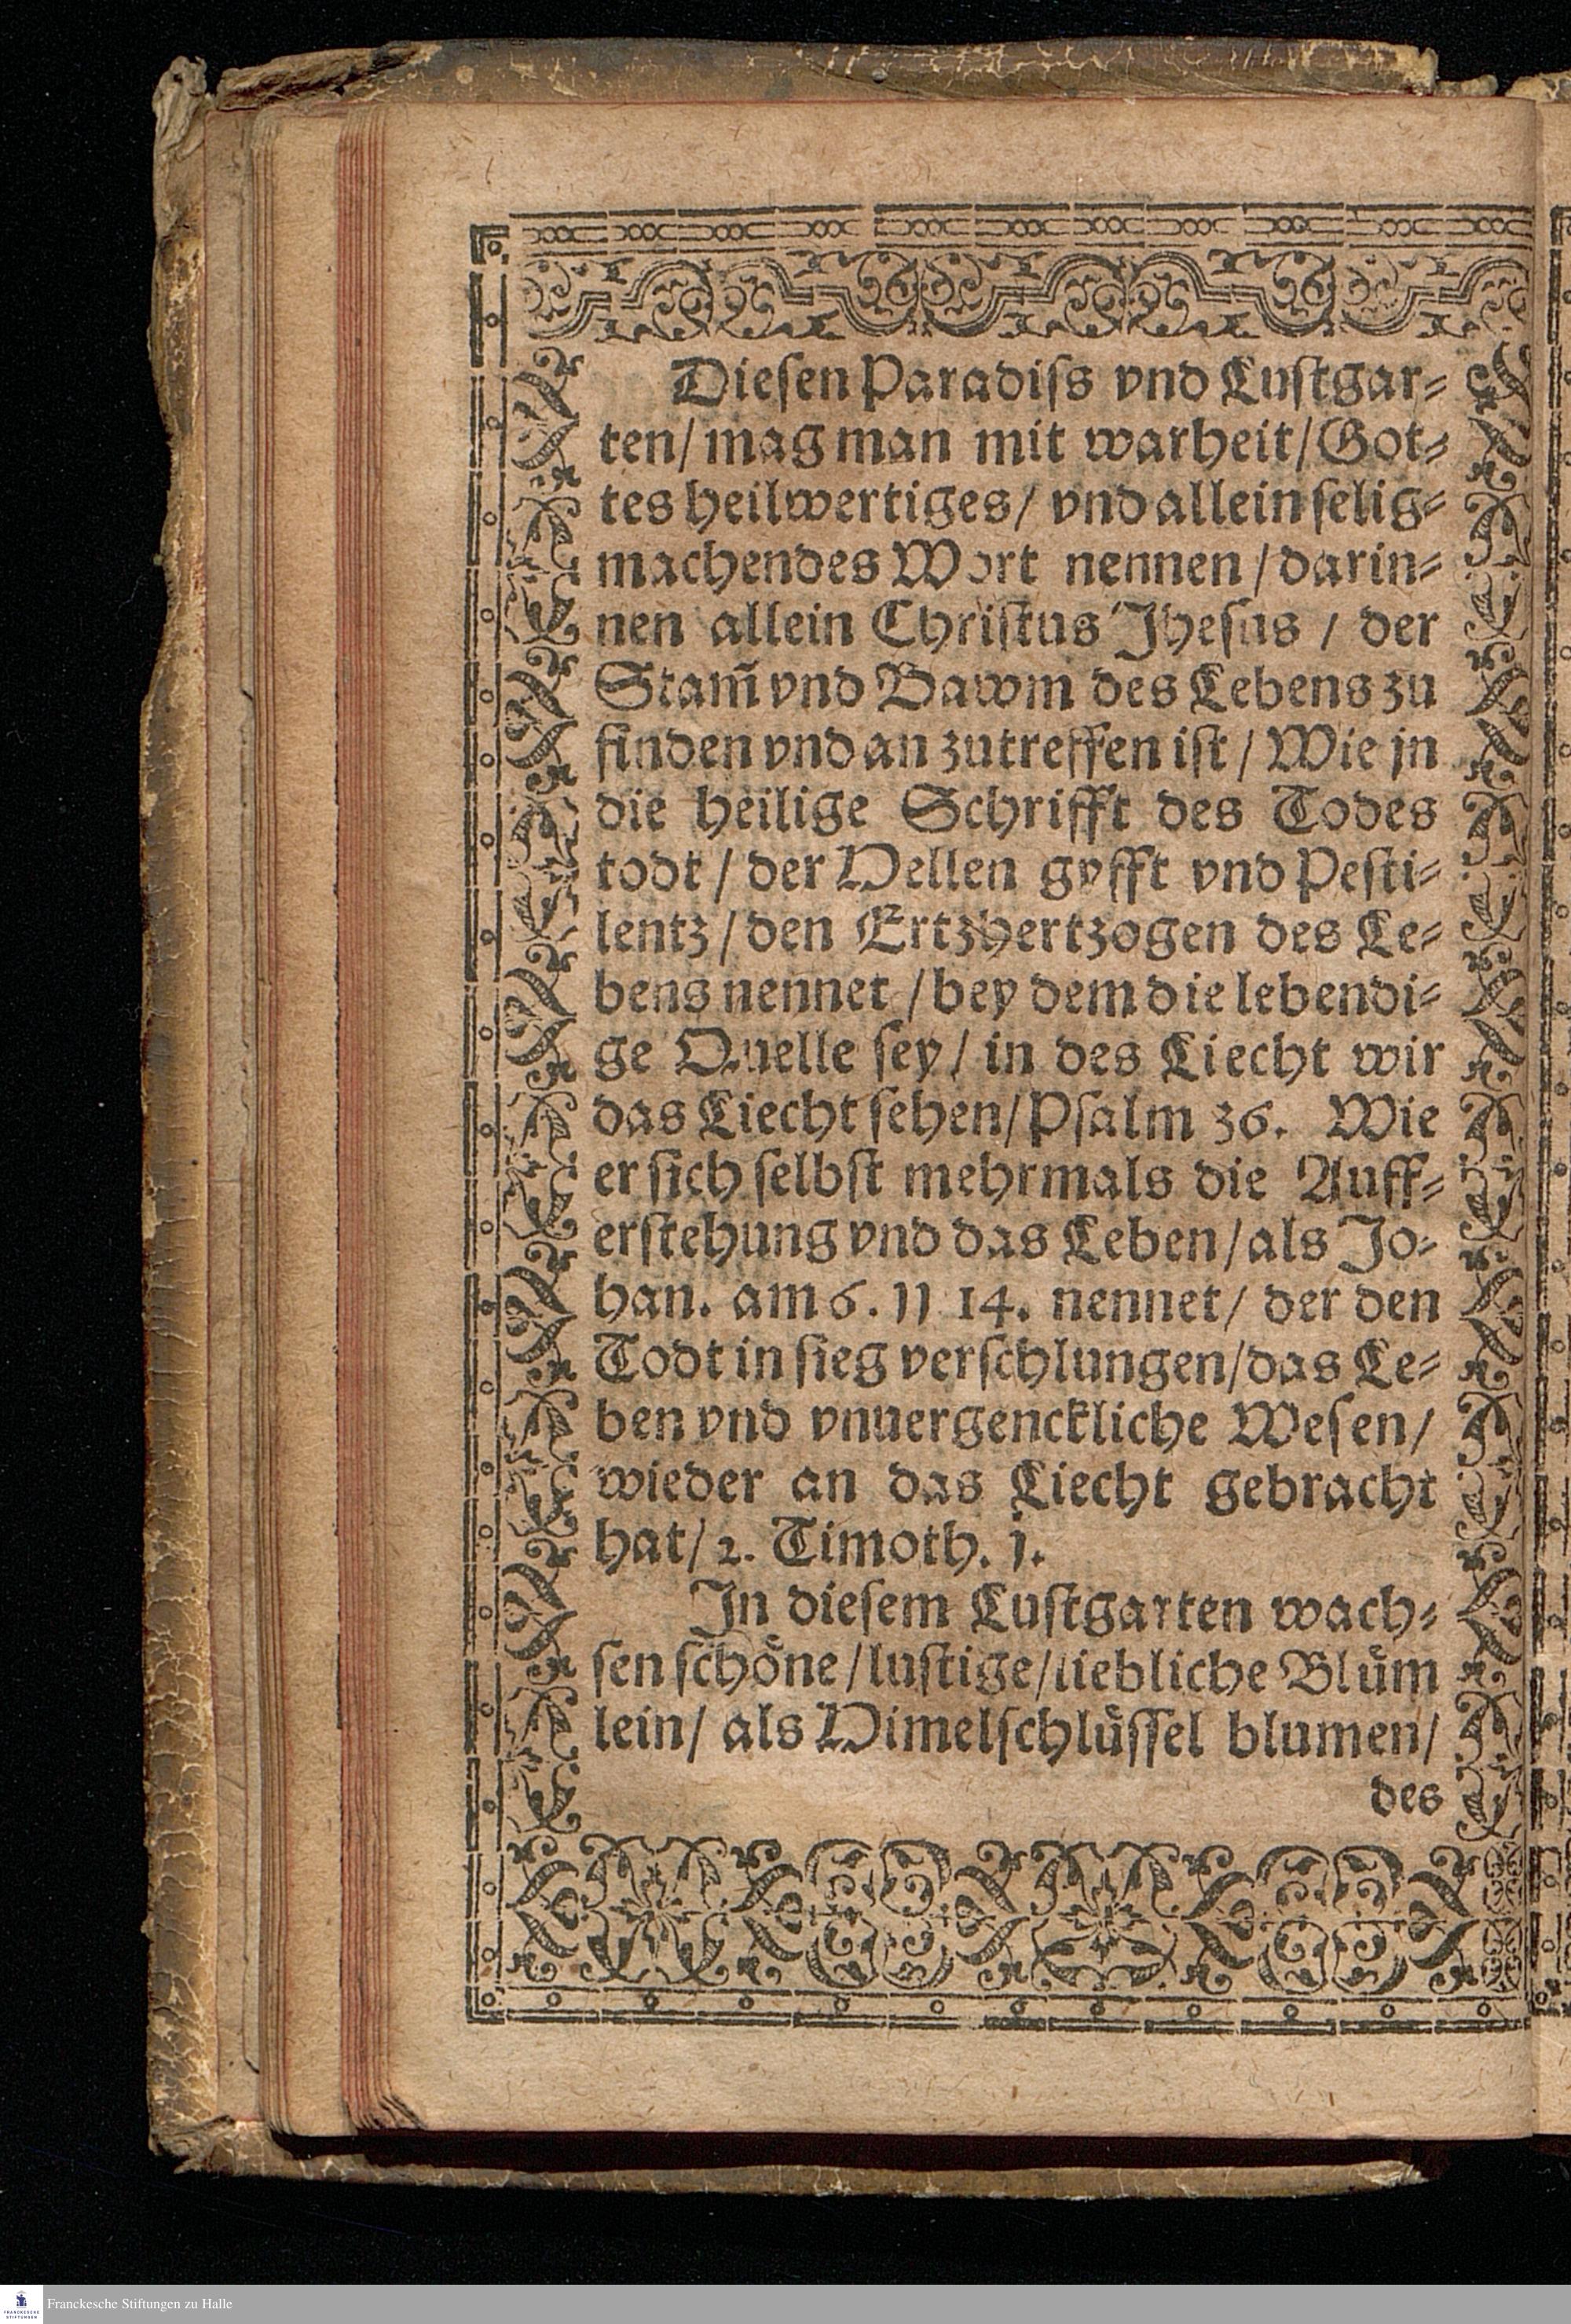 Dieſen Paradiſs vnd Luſtgar⸗
ten/ mag man mit warheit/ Got⸗
tes heilwertiges/ vnd allein ſelig⸗
machendes Wort nennen/ darin⸗
nen allein Chriſtus Jheſus / der
Stam̃ vnd Bawm des Lebens zu
finden vnd an zutreffen iſt/ Wie jn
die heilige Schrifft des Todes
todt/ der Hellen gyfft vnd Peſti⸗
lentz/ den Ertzhertzogen des Le⸗
bens nennet/ bey dem die lebendi⸗
ge Quelle ſey/ in des Liecht wir
das Liecht ſehen/ Pſalm 36. Wie
er ſich ſelbſt mehrmals die Auff⸗
erſtehung vnd das Leben/ als Jo⸗
han. am 6. 11 14. nennet/ der den
Todt in ſieg verſchlungen/ das Le⸗
ben vnd vnuergenckliche Weſen/
wieder an das Liecht gebracht
hat/ 2. Timoth. j.
In dieſem Luſtgarten wach⸗
ſen ſchoͤne/ luſtige/ liebliche Bluͤm
lein/ als Himelſchluͤſſel blumen/
des
FRANCKESCHE
STIFTUNGEN
Franckesche Stiftungen zu Halle